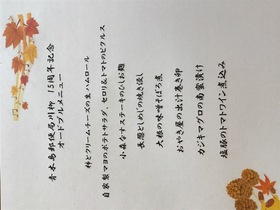 青木島郵便局川柳 15周年記念
オードブルメニュー
柿とクリームチーズの生ハムロール
自家製マヨのポテトサラダ、セロリ&トマトのピクルス
小森なすステーキのひしお麹
長芋としめじの焼き浸し
大根の味噌そぼろ煮
おやき屋の出汁巻き卵
カジキマグロの南蛮漬け
塩豚のトマトワイン煮込み